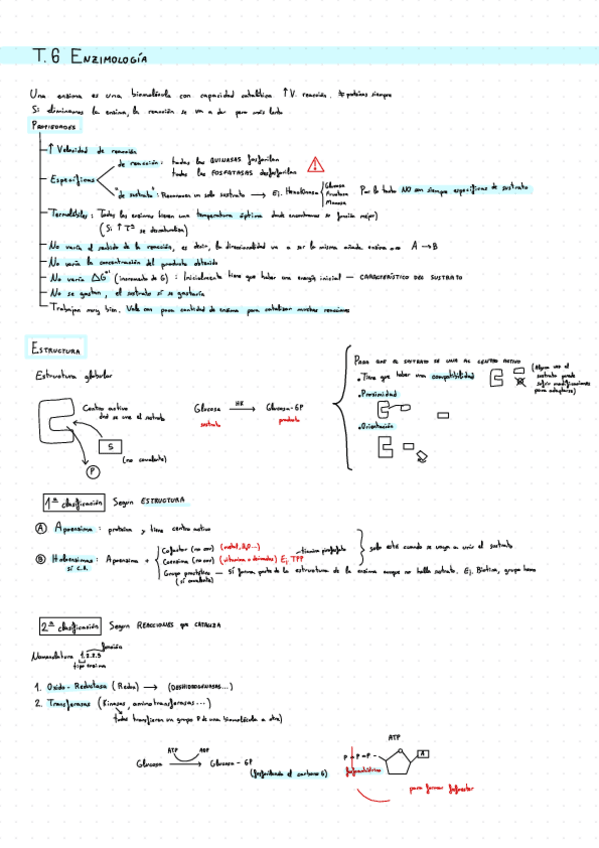 T.6 ENZIMOLOGÍA
Una enzima es una biomolécula con capacidad catalítica. ↑V. reacción. proteínas siempre
Si eliminamos la enzima, la reacción se va a dar pero más lenta
PROPIEDADES
↑ Velocidad de reacción
Específicas
de reacción: todas las QUINASAS fosforilan
todas las FOSFATASAS desfosforilan
"de sustrato": Reconocen un solo sustrato → Ej. Hexokinasa
Glucosa
Fructosa
Manosa
Por lo tanto NO son siempre específicas de sustrato
Termolábiles: Todas las enzimas tienen una temperatura óptima donde encontramos su función mejor)
(Si ↑Tª se desnaturaliza)
No varía el sentido de la reacción, es decir, la direccionalidad va a ser la misma añada enzima o no A → B
No varía la concentración del producto obtenido
No varía ΔG (incremento de G): Inicialmente tiene que haber una energía inicial — CARACTERÍSTICO DEL SUSTRATO
No se gastan, el sustrato sí se gastaría
Trabajan muy bien. Vale con poca cantidad de enzima para catalizar muchas reacciones
ESTRUCTURA
Estructura globular
Centro activo
dnd se une el sustrato
S
(no covalente)
P
Glucosa HK → Glucosa-6P
sustrato producto
PARA QUE EL SUSTRATO SE UNA AL CENTRO ACTIVO
• Tiene que haber una compatibilidad
(Alguna vez el
sustrato puede
sufrir modificaciones
para adaptarse)
• Proximidad
• Orientación
1ª clasificación Según ESTRUCTURA
A Apoenzima: proteína y tiene centro activo
B Holoenzimas: Apoenzima +
Cofactor (no cov) (metal, ...)
Coenzima (no cov) (vitamina o derivados) Ej. TPP
tiamina pirofosfato
solo está cuando se vaya a unir el sustrato
Grupo prostético — Sí forma parte de la estructura de la enzima aunque no halla sustrato. Ej. Biotina, grupo hemo
(sí covalente)
2ª clasificación Según REACCIONES que CATALIZA
Nomenclatura 1.2.2.3
función
tipo enzima
1. Oxido-Reductasa (Redox) → (DESHIDROGENASAS...)
2. Transferasas (Kinasas, aminotransferasas...)
todas transfieren un grupo P de una biomolécula a otra)
ATP ADP
Glucosa → Glucosa-6P
(fosforilando el carbono 6)
ATP
P-P-P-
A
para formar fosfoester